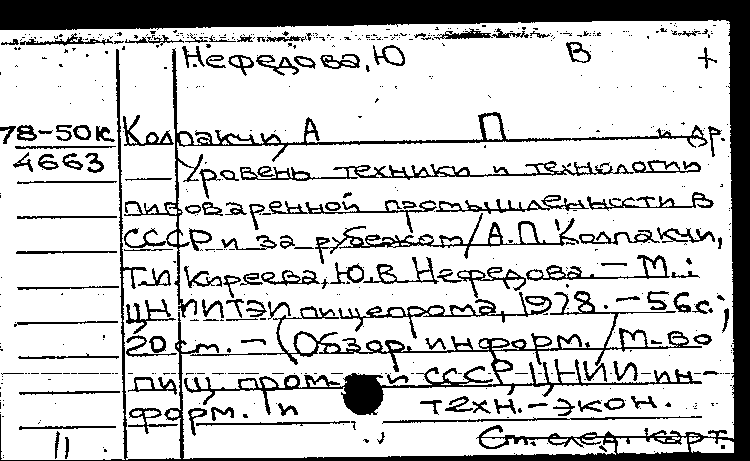 Нефедова, Ю В +
78-50к Колпакчи, А П и др.
4663 Уровень техники и технологии
пивоваренной промышленности в
СССР и за рубежом / А.П. Колпакчи,
Т.И. Киреева, Ю.В. Нефедова. — М.:
ЦНИИТЭИпищепрома, 1978. — 56 с.;
20 см. — (Обзор. информ. / М-во
пищ. пром-ти СССР, ЦНИИ ин-
форм. и техн.-экон.
11 См. след. карт.